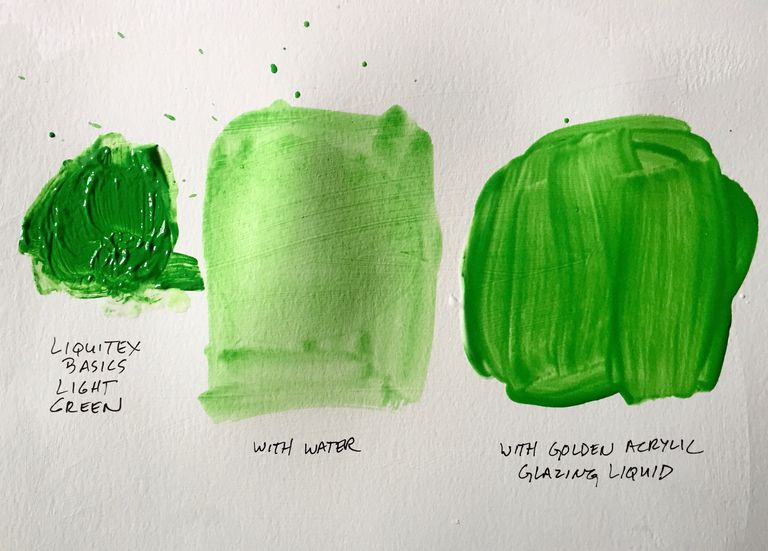 LIQUITEX
BASICS
LIGHT
GREEN
WITH WATER
WITH GOLDEN ACRYLIC
GLAZING LIQUID